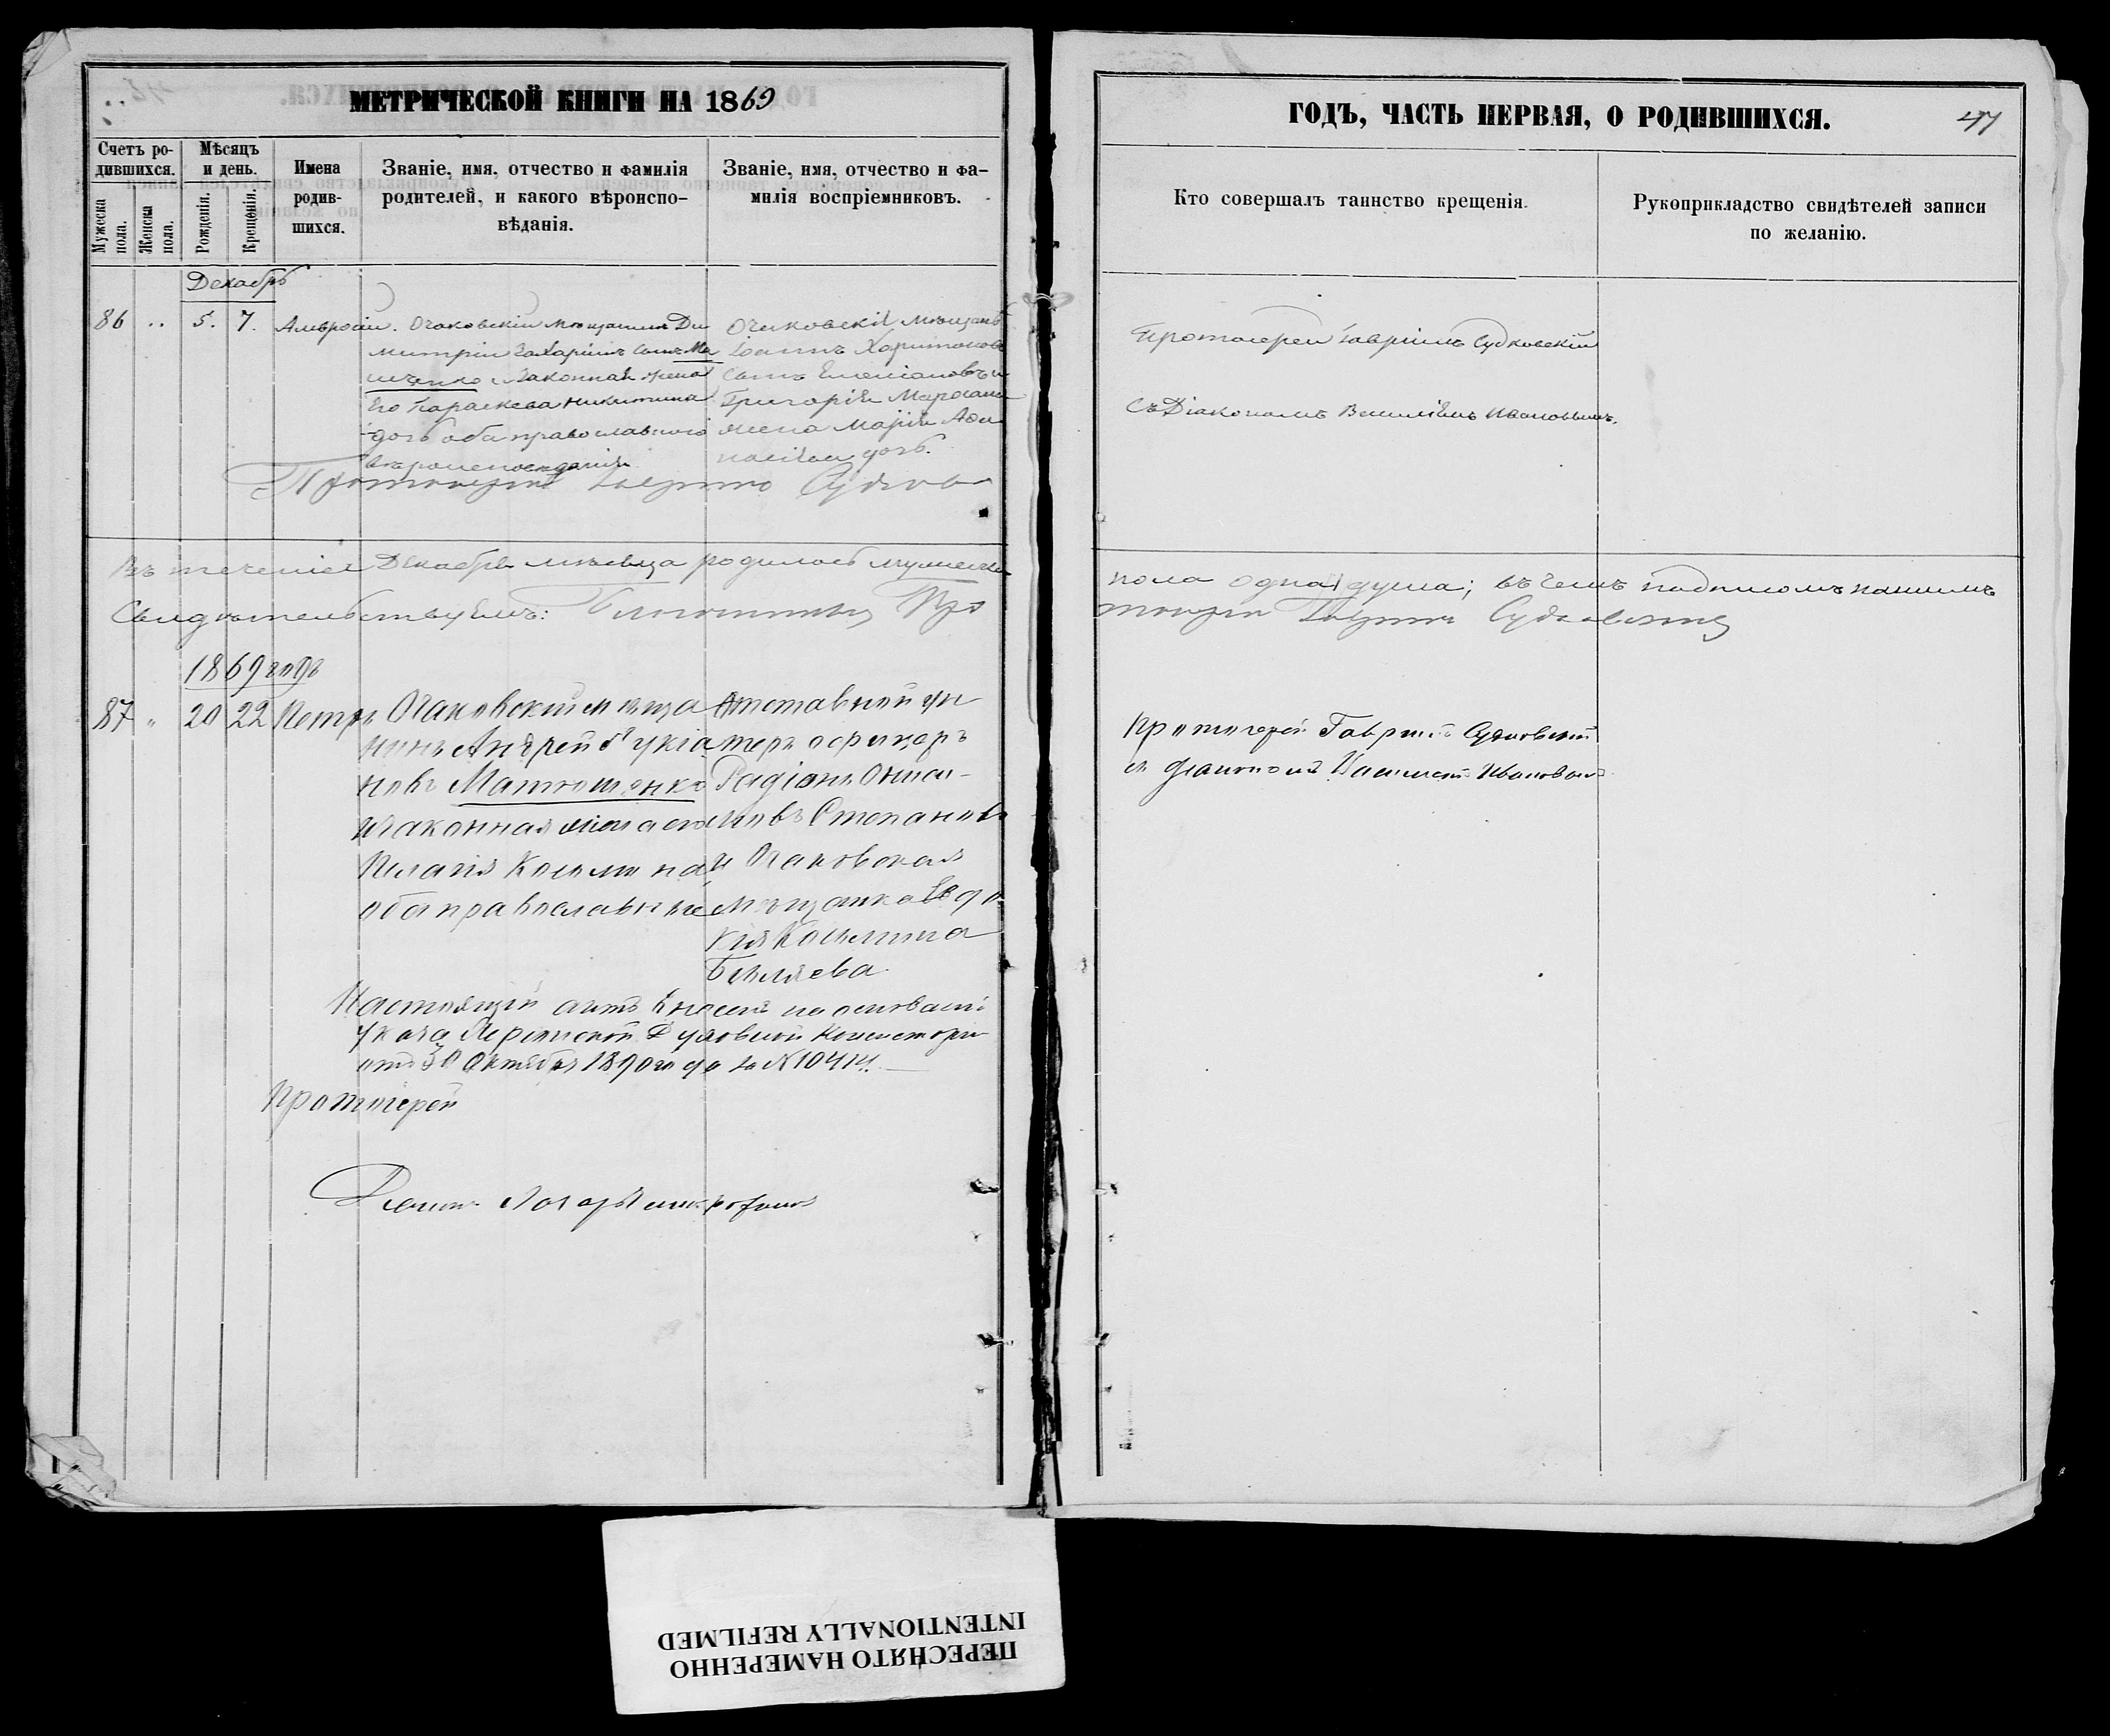 МЕТРИЧЕСКОЙ КНИГИ НА 1869
ГОДЪ, ЧАСТЬ ПЕРВАЯ, О РОДИВШИХСЯ.
Счетъ ро-
дившихся.
Мужеска
пола.
Женска
пола.
Мѣсяцъ
и день.
Рожденія.
Крещенія.
Имена
родив-
шихся.
Званіе, имя, отчество и фамилія
родителей, и какого вѣроиспо-
вѣданія.
Званіе, имя, отчество и фа-
милія воспріемниковъ.
Кто совершалъ таинство крещенія.
Рукоприкладство свидѣтелей записи
по желанію.
Декабрь
86 .. 5. 7. Амвросій.
Очаковскій мѣщанинъ Ди
митрій Захаріинъ сынъ Ма
и законная жена
его Параскева Никитина
дочь оба православнаго
вѣроисповѣданія
Очаковскій мѣщанинъ
Іоаннъ Харитоновъ
сынъ
Григорія
жена Марія
дочь.
Протоіерей Гавріилъ Судковскій
Съ Діакономъ Василіемъ Ивановымъ.
Протоіерей Гавріилъ Судков
Въ теченіе Декабря мѣсяца родилось мужеска
пола одна душа; въ чемъ подписомъ нашимъ
Свидѣтельствуемъ: Благочинный Про
тоіерей Гавріилъ Судковскій
1869 годъ
87 " 20 22 Петръ
Очаковскій мѣща
нинъ Андрей Лукіа
новъ Матюшенко
и законная жена его
Пелагія Косьмина
оба православные
Отставной ун
теръ офицеръ
Радіонъ
новъ Степановъ
и Очаковская
мѣщанка Евдо
кія Косьмина
Бѣляева.
Протоіерей Гавріилъ Судковскій
съ діакономъ Василіемъ Ивановымъ
Настоящій актъ внесенъ на основаніи
Указа Херсонской Духовной Консисторіи
отъ 30 Октября 1890 года за №
Протоіерей